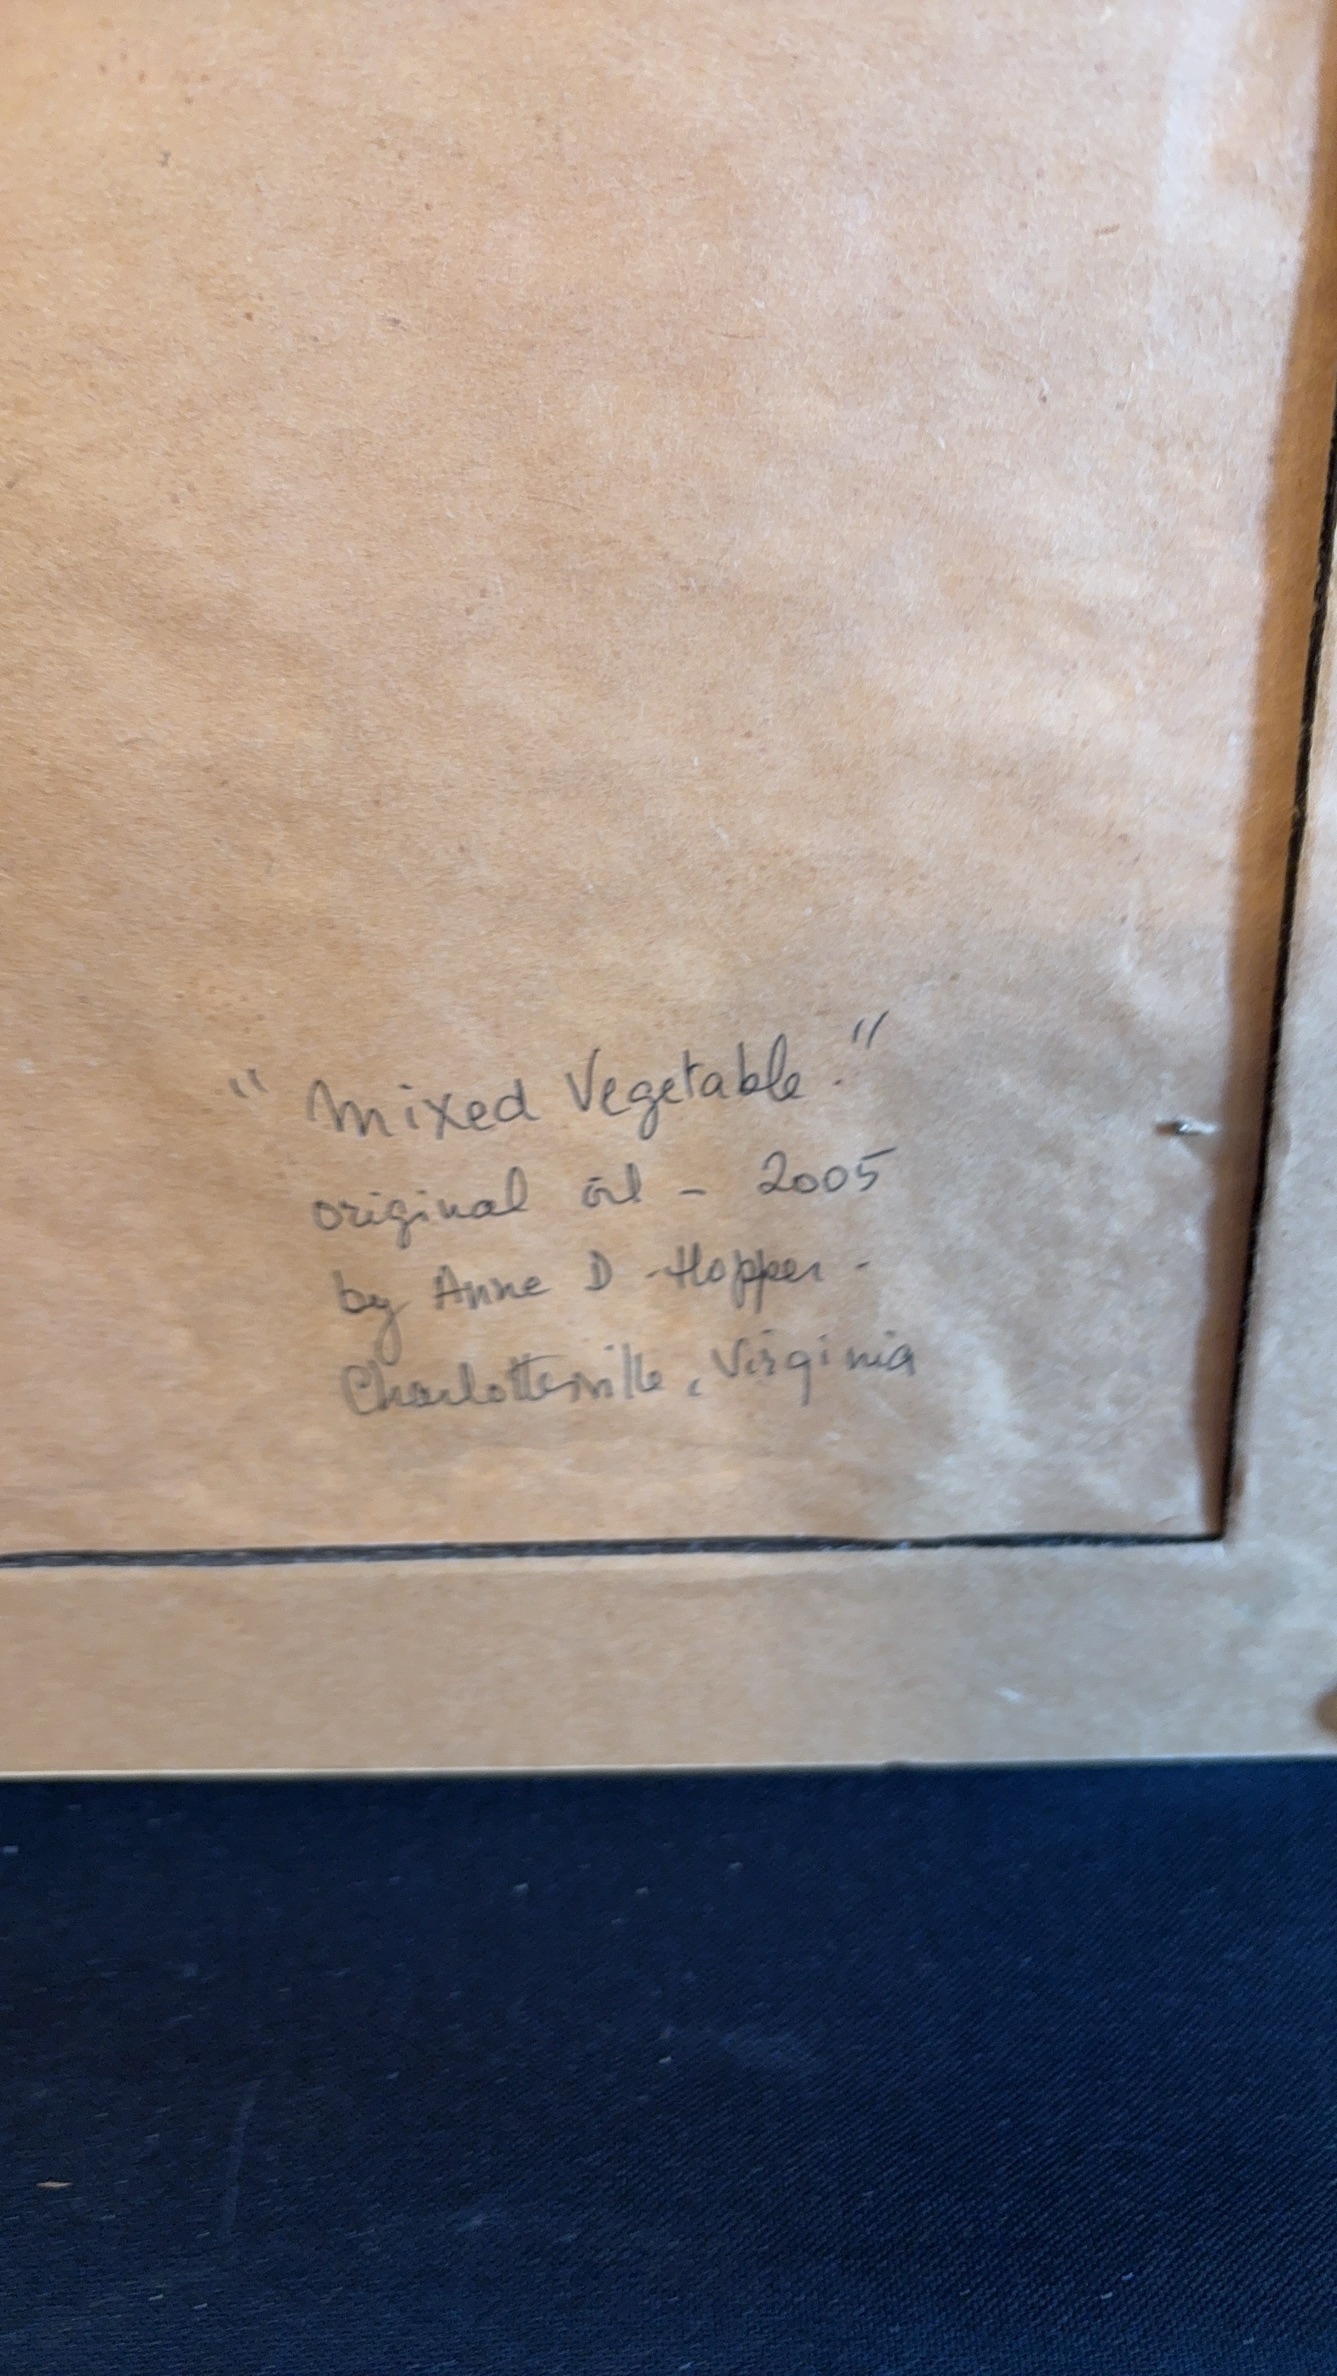 "Mixed Vegetable."
original oil - 2005
by Anne D Hopper -
Charlottesville, Virginia